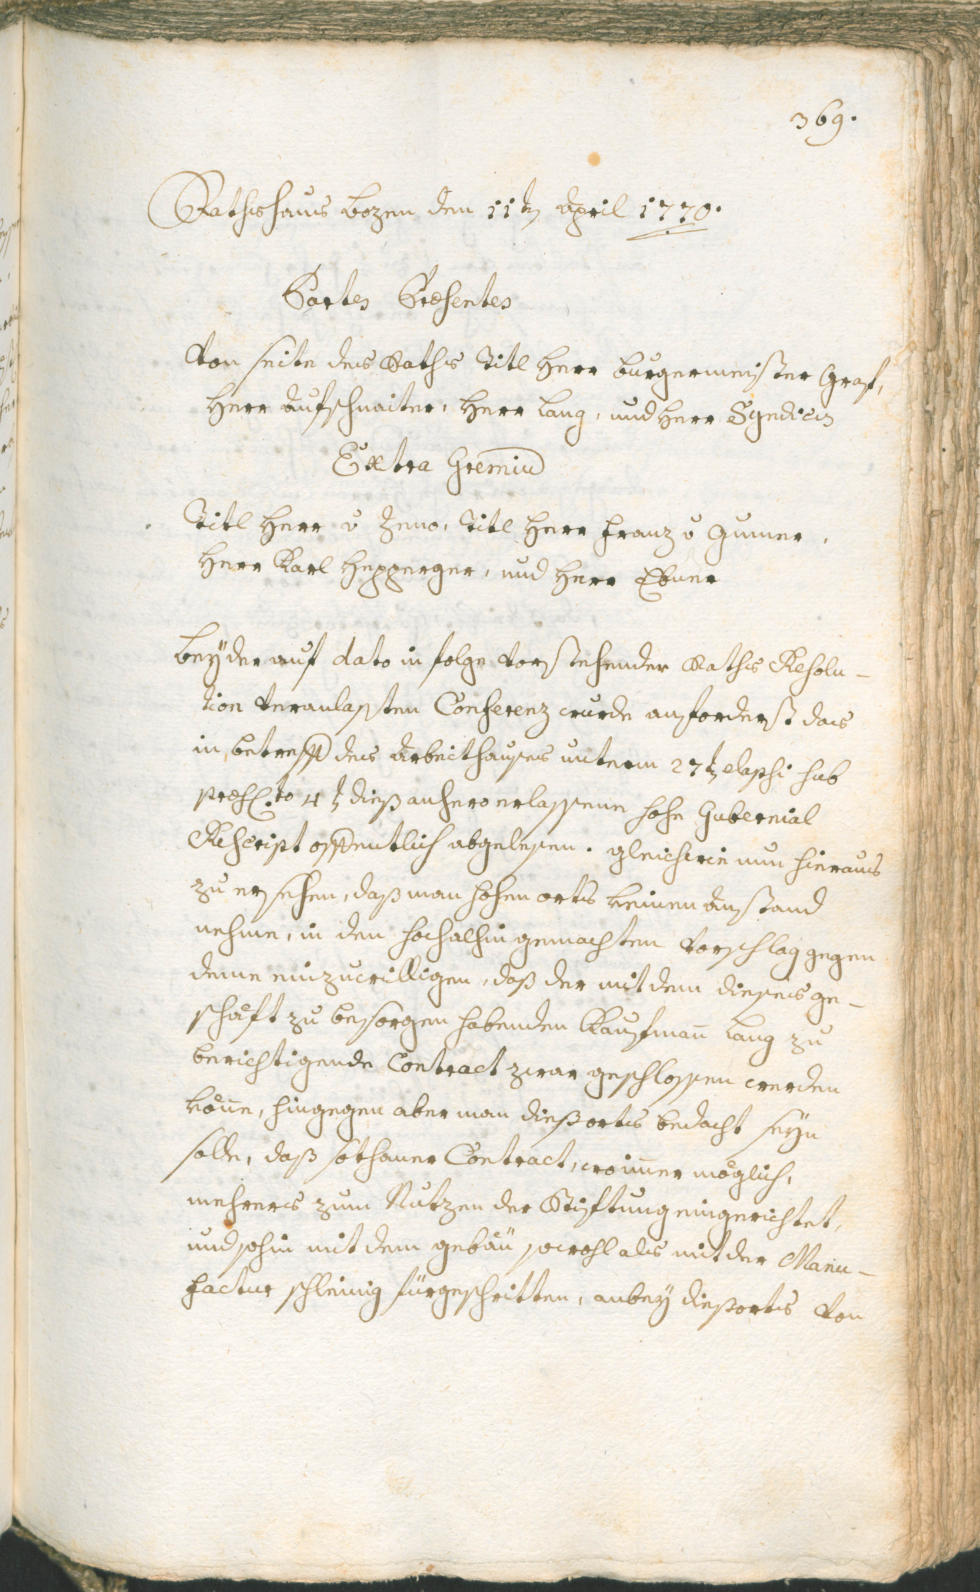 369.
Rathshaus Bozen den 11t April 1770.
Partes Præsentes
Von seite des Raths Titl Herr Burgermeister Graf,
Herr Aufschnaiter, Herr Lang, und Herr Syndicus
Extra Gremiu
Titl Herr v Zeno, Titl Herr Franz v Gumer,
Herr Karl Hepperger, und Herr Ebner
Bey der auf dato in folge vorstehender Raths Resolu-
tion veranlassten Conferenz wurde anforderst das
in betreff des Arbeithauses unterm 27t elapsi hab
præs.to 4t diß anhero erlassene hohe Gubernial
Rescript offentlich abgelesen. gleichwie nun hieraus
zu ersehen, daß man hohen orts keinen Anstand
nehme, in den hochalhin gemachten Vorschlag gegen
deme einzuwilligen, daß der mit dem dieses ge-
schäft zu besorgen habenden Kaufmann Lang zu
berichtigende Contract zwar geschlossen werden
könne, hingegen aber man dießorts bedacht seyn
solle, daß sothaner Contract, wo immer möglich,
mehrers zum Nutzen der Stiftung eingerichtet,
und sohin mit dem gebäu sowohl als mit der Manu-
factur schleinig fürgeschritten, anbey diesorts von